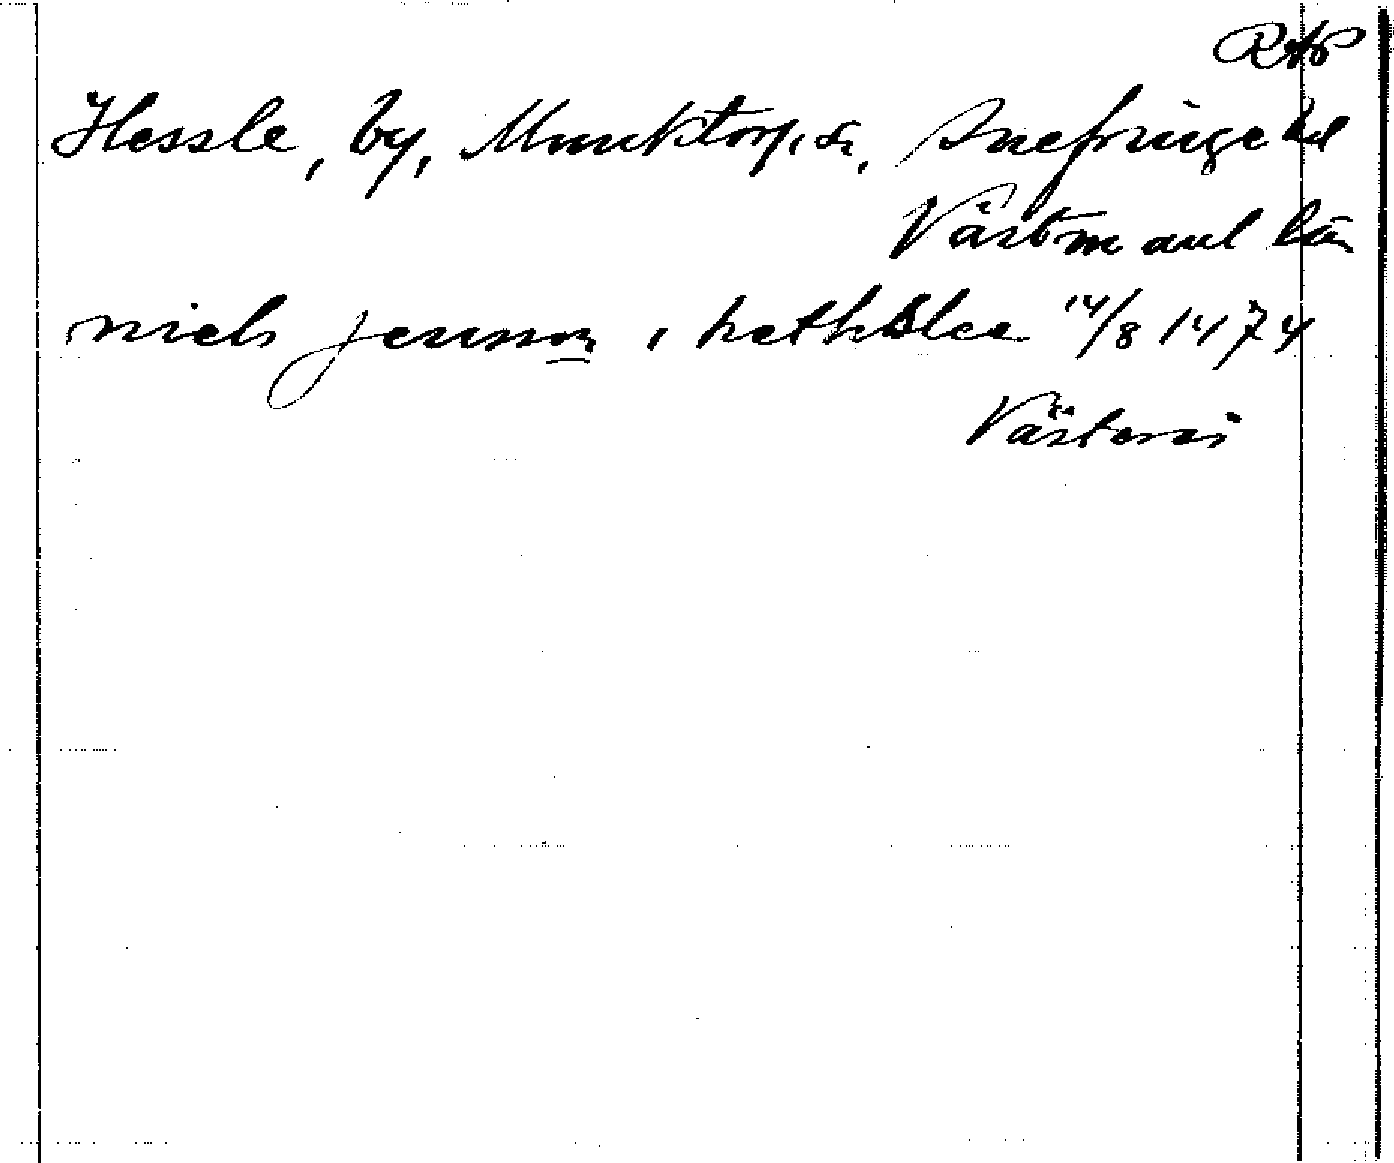 RAP
Hessle, by, Munktorp, sn, Snefringe hd
Västmanl län
niels jensson, hethsle 14/8 1474
Västerås